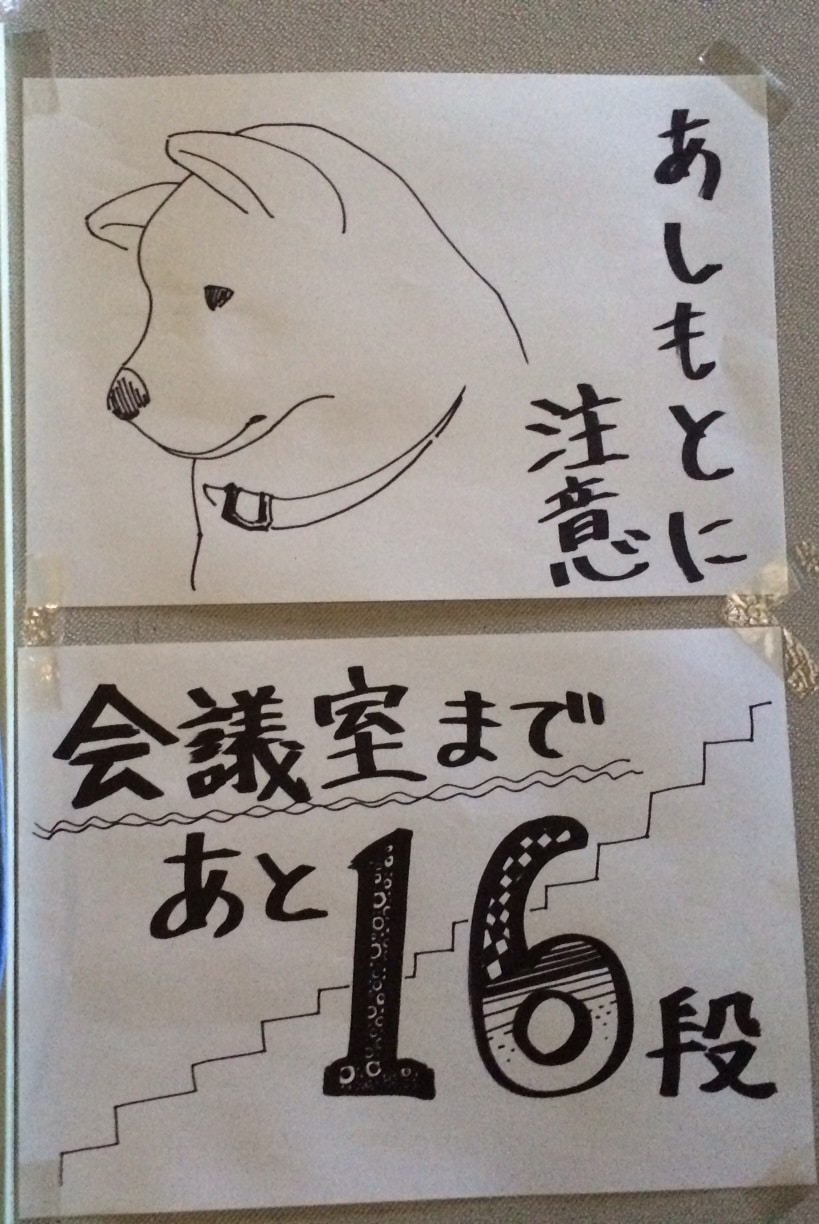 あしもとに
注意
会議室まで
あと16段